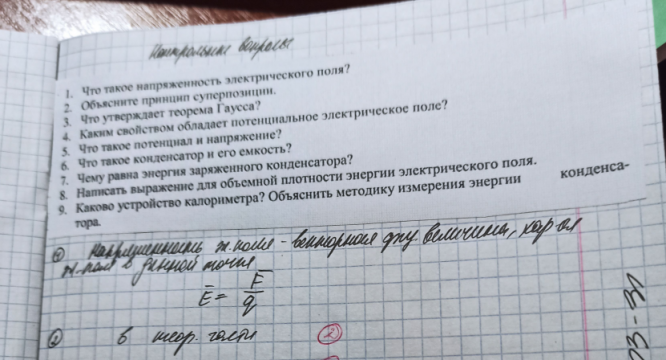 Контрольные вопросы
1. Что такое напряженность электрического поля?
2. Объясните принцип суперпозиции.
3. Что утверждает теорема Гаусса?
4. Каким свойством обладает потенциальное электрическое поле?
5. Что такое потенциал и напряжение?
6. Что такое конденсатор и его емкость?
7. Чему равна энергия заряженного конденсатора?
8. Написать выражение для объемной плотности энергии электрического поля.
9. Каково устройство калориметра? Объяснить методику измерения энергии конденса-
тора.
① напряженность эл. поля - векторная физ. величина, хар-ая
эл. поле в данной точке
E̅ = F̅/q
② в теор. части ②